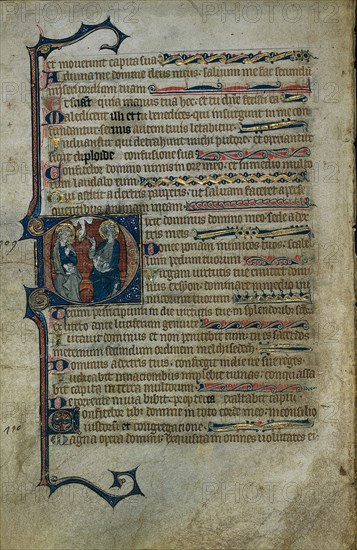 et moverunt capita sua
Adiuva me domine deus meus: salvum me fac secundum
misericordiam tuam
Et sciant quia manus tua hec: et tu domine fecisti ea
Maledicent illi et tu benedices: qui insurgunt in me con
fundantur: servus autem tuus letabitur
Induantur qui detrahunt michi pudore: et operiantur
sicut diployde confusione sua
Confitebor domino nimis in ore meo: et in medio multo
rum laudabo eum
Qui astitit a dexteris pauperis: ut salvam faceret a perse
quentibus animam meam
Dixit dominus domino meo: sede a dex
tris meis
Donec ponam inimicos tuos: scabel
lum pedum tuorum
Virgam virtutis tue emittet domin
us ex syon: dominare in medio inimicorum tuorum
Tecum principium in die virtutis tue in splendoribus scto
rum ex utero ante luciferum genui te
Iuravit dominus et non penitebit eum: tu es sacerdos
in eternum secundum ordinem melchisedech
Dominus a dextris tuis: confregit in die ire sue reges
Iudicabit in nationibus implebit ruinas: conquassa
bit capita in terra multorum
De torrente in via bibit: propterea exaltabit caput
109
Confitebor tibi domine in toto corde meo: in consilio
iustorum et congregatione
110
Magna opera domini: exquisita in omnes voluntates ei